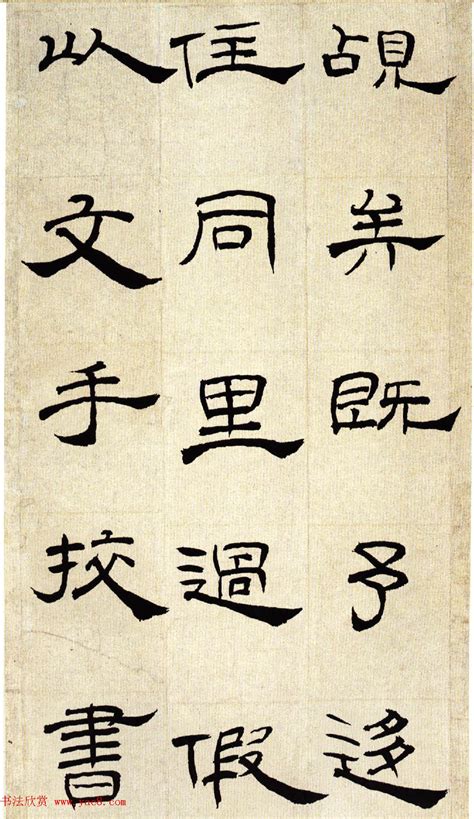 覘并既予迻
住同里過假
以文手挍書
书法欣赏 www.yac8.com